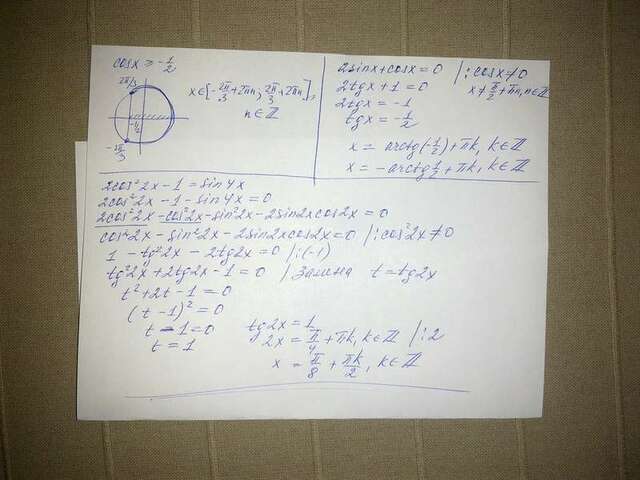 cosx ≥ -1/2
2π/3
-1/2
-2π/3
x∈[-2π/3+2πn; 2π/3+2πn],
n∈ℤ
2sinx+cosx=0 |:cosx≠0
2tgx+1=0 x≠π/2+πn, n∈ℤ
2tgx=-1
tgx=-1/2
x=arctg(-1/2)+πk, k∈ℤ
x=-arctg1/2+πk, k∈ℤ
2cos²2x-1=sin4x
2cos²2x-1-sin4x=0
2cos²2x-cos²2x-sin²2x-2sin2xcos2x=0
cos²2x-sin²2x-2sin2xcos2x=0 |:cos²2x≠0
1-tg²2x-2tg2x=0 |:(-1)
tg²2x+2tg2x-1=0 |Замена t=tg2x
t²+2t-1=0
(t-1)²=0
t-1=0
t=1
tg2x=1
2x=π/4+πk, k∈ℤ |:2
x=π/8+πk/2, k∈ℤ